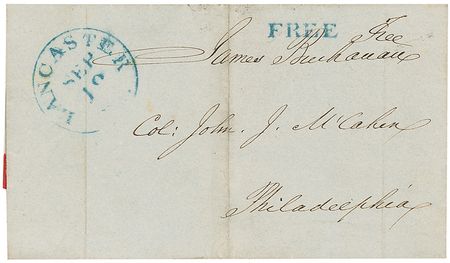 FREE
Free
James Buchanan
LANCASTER
SEP
19
Col: John. J. McCahen
Philadelphia